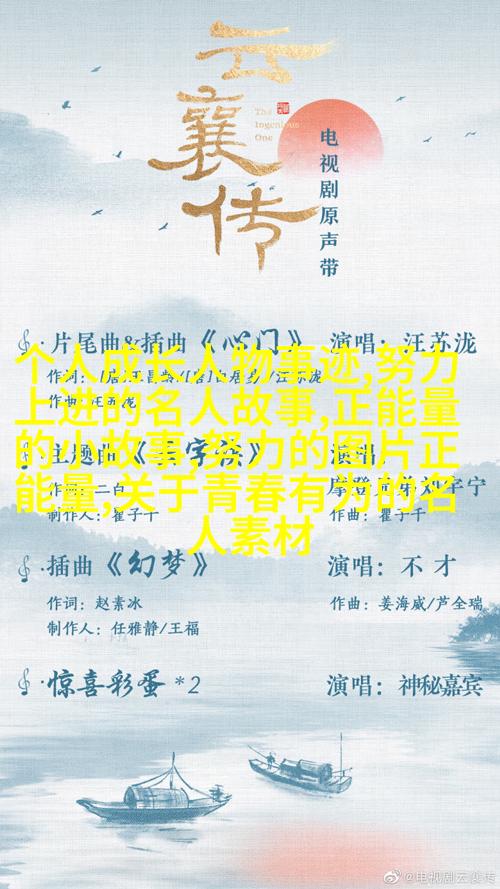 云襄传
The
Ingenious
One
电视剧原声带
片尾曲&插曲《心门》 演唱：汪苏泷
个人成长人物事迹,努力
上进的名人故事,正能量
的小故事,努力的图片正
能量,关于青春有为的名
人素材
主题曲
制作人：瞿子千 作曲：瞿子千
插曲《幻梦》 演唱：不才
作词：赵素冰 作曲：姜海威/芦全瑞
制作人：任雅静/王福
惊喜彩蛋*2 演唱：神秘嘉宾
@电视剧云襄传